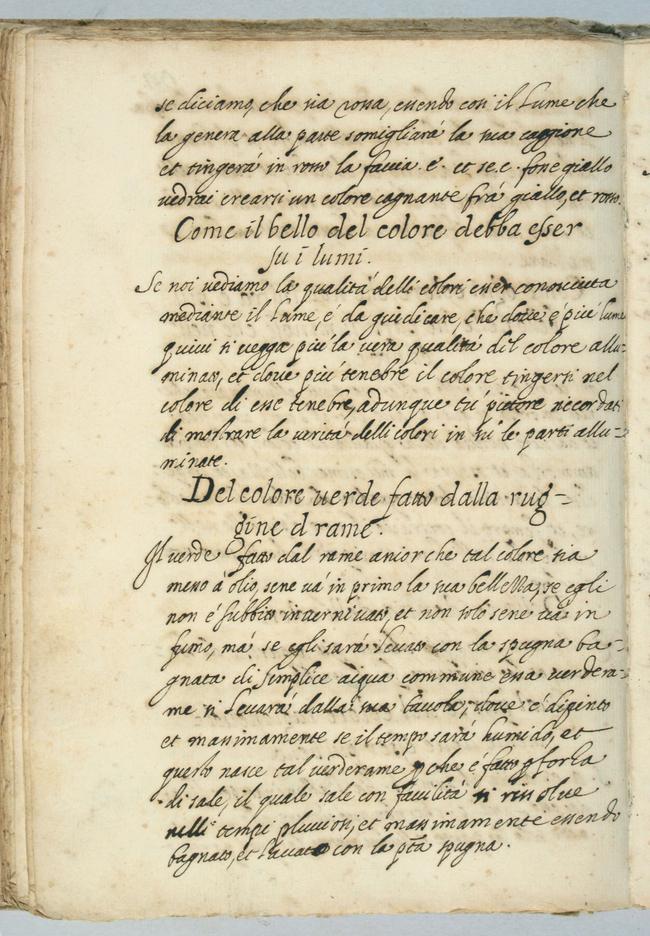 se diciamo, che sia rossa, essendo così il Lume che
la genera alla parte somigliará la sua caggione
et tingerá in rosso la faccia .é. et se .c. fosse giallo
vedrai crearsi un colore cagnante frá giallo, et rosso.
Come il bello del colore debba esser
su i lumi.
Se noi vediamo la qualitá delli colori esser conosciuta
mediante il Lume, é da guidicare, che dove é piú lume
quivi si vegga piú la vera qualitá dil colore allu=
minato, et dove piú tenebre il colore tingersi nel
colore di esse tenebre, adunque tú pittore ricordati
di mostrare la veritá delli colori in sú le parti allu=
minate.
Del colore verde fatto dalla rug=
gine d rame.
Il verde fatto dal rame anior che tal colore sia
messo á olio, sene vá in fumo la sua bellezza, se egli
non é subbito invernivato, et non solo sene vá in
fumo, má se egli sará levato con la spugna ba=
gnata di simplice aiqua commune essa verdera=
me si levará dalla sua tavola, dove é dipinto
et massimamente se il tempo sará humido, et
questo nasce tal verderame pche é fatto p forza
di sale, il quale sale con facilitá si rissolve
nelli tempi pluviosi, et massimamente essendo
bagnato, et lavato con la pta spugna.